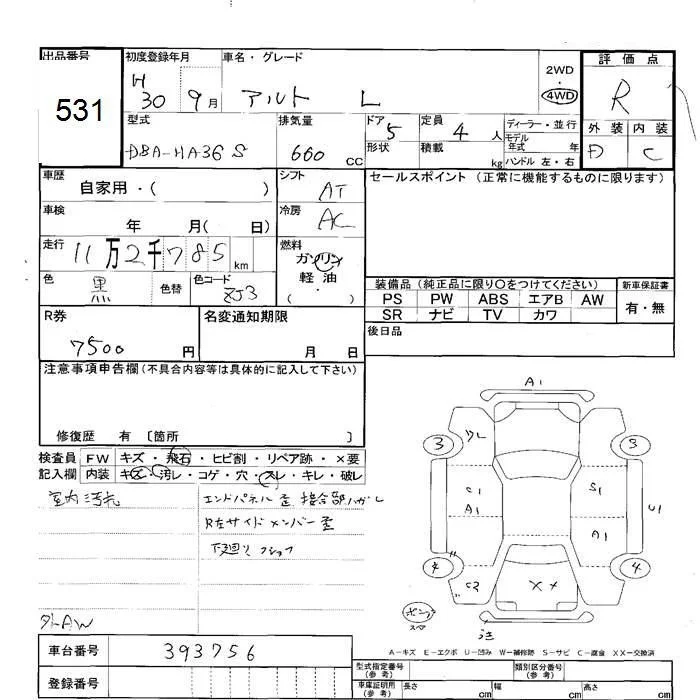 出品番号 初度登録年月 車名・グレード 2WD 評価点
531 H 30 9月 アルト L 4WD R
型式 排気量 ドア 5 定員 4 人 ディーラー・並行 外装 内装
DBA-HA36S 660 CC 形状 積載 kg モデル年式 年 D C
ハンドル 左・右
車歴 シフト セールスポイント (正常に機能するものに限ります)
自家用・( ) AT
車検 冷房
年 月( 日) AC
走行 燃料
11万2千785 km ガソリン
軽油
・
( )
色 黒 色替 色コード ZJ3 装備品 (純正品に限り○をつけてください) 新車保証書
PS PW ABS エアB AW 有・無
SR ナビ TV カワ
R券 名変通知期限 後日品
7500 円 月 日
注意事項申告欄 (不具合内容等は具体的に記入して下さい)
修復歴 有 〔箇所 〕
検査員 FW キズ・飛石・ヒビ割・リペア跡・×要
記入欄 内装 キズ・汚レ・コゲ・穴・スレ・キレ・破レ
室内汚れ エンドパネル歪 接合部ハガレ
R左サイドメンバー歪
下廻り
外AW
A1
3 3
C1 S1
A1 U1
A1
4 4
C2 XX
スペア 注
A-キズ E-エクボ U-凹み W-補修跡 S-サビ C-腐食 XX-交換済
車台番号 393756
登録番号
型式指定番号 (参考) 類別区分番号 (参考)
車庫証明用 (参考) 長さ cm 幅 cm 高さ cm